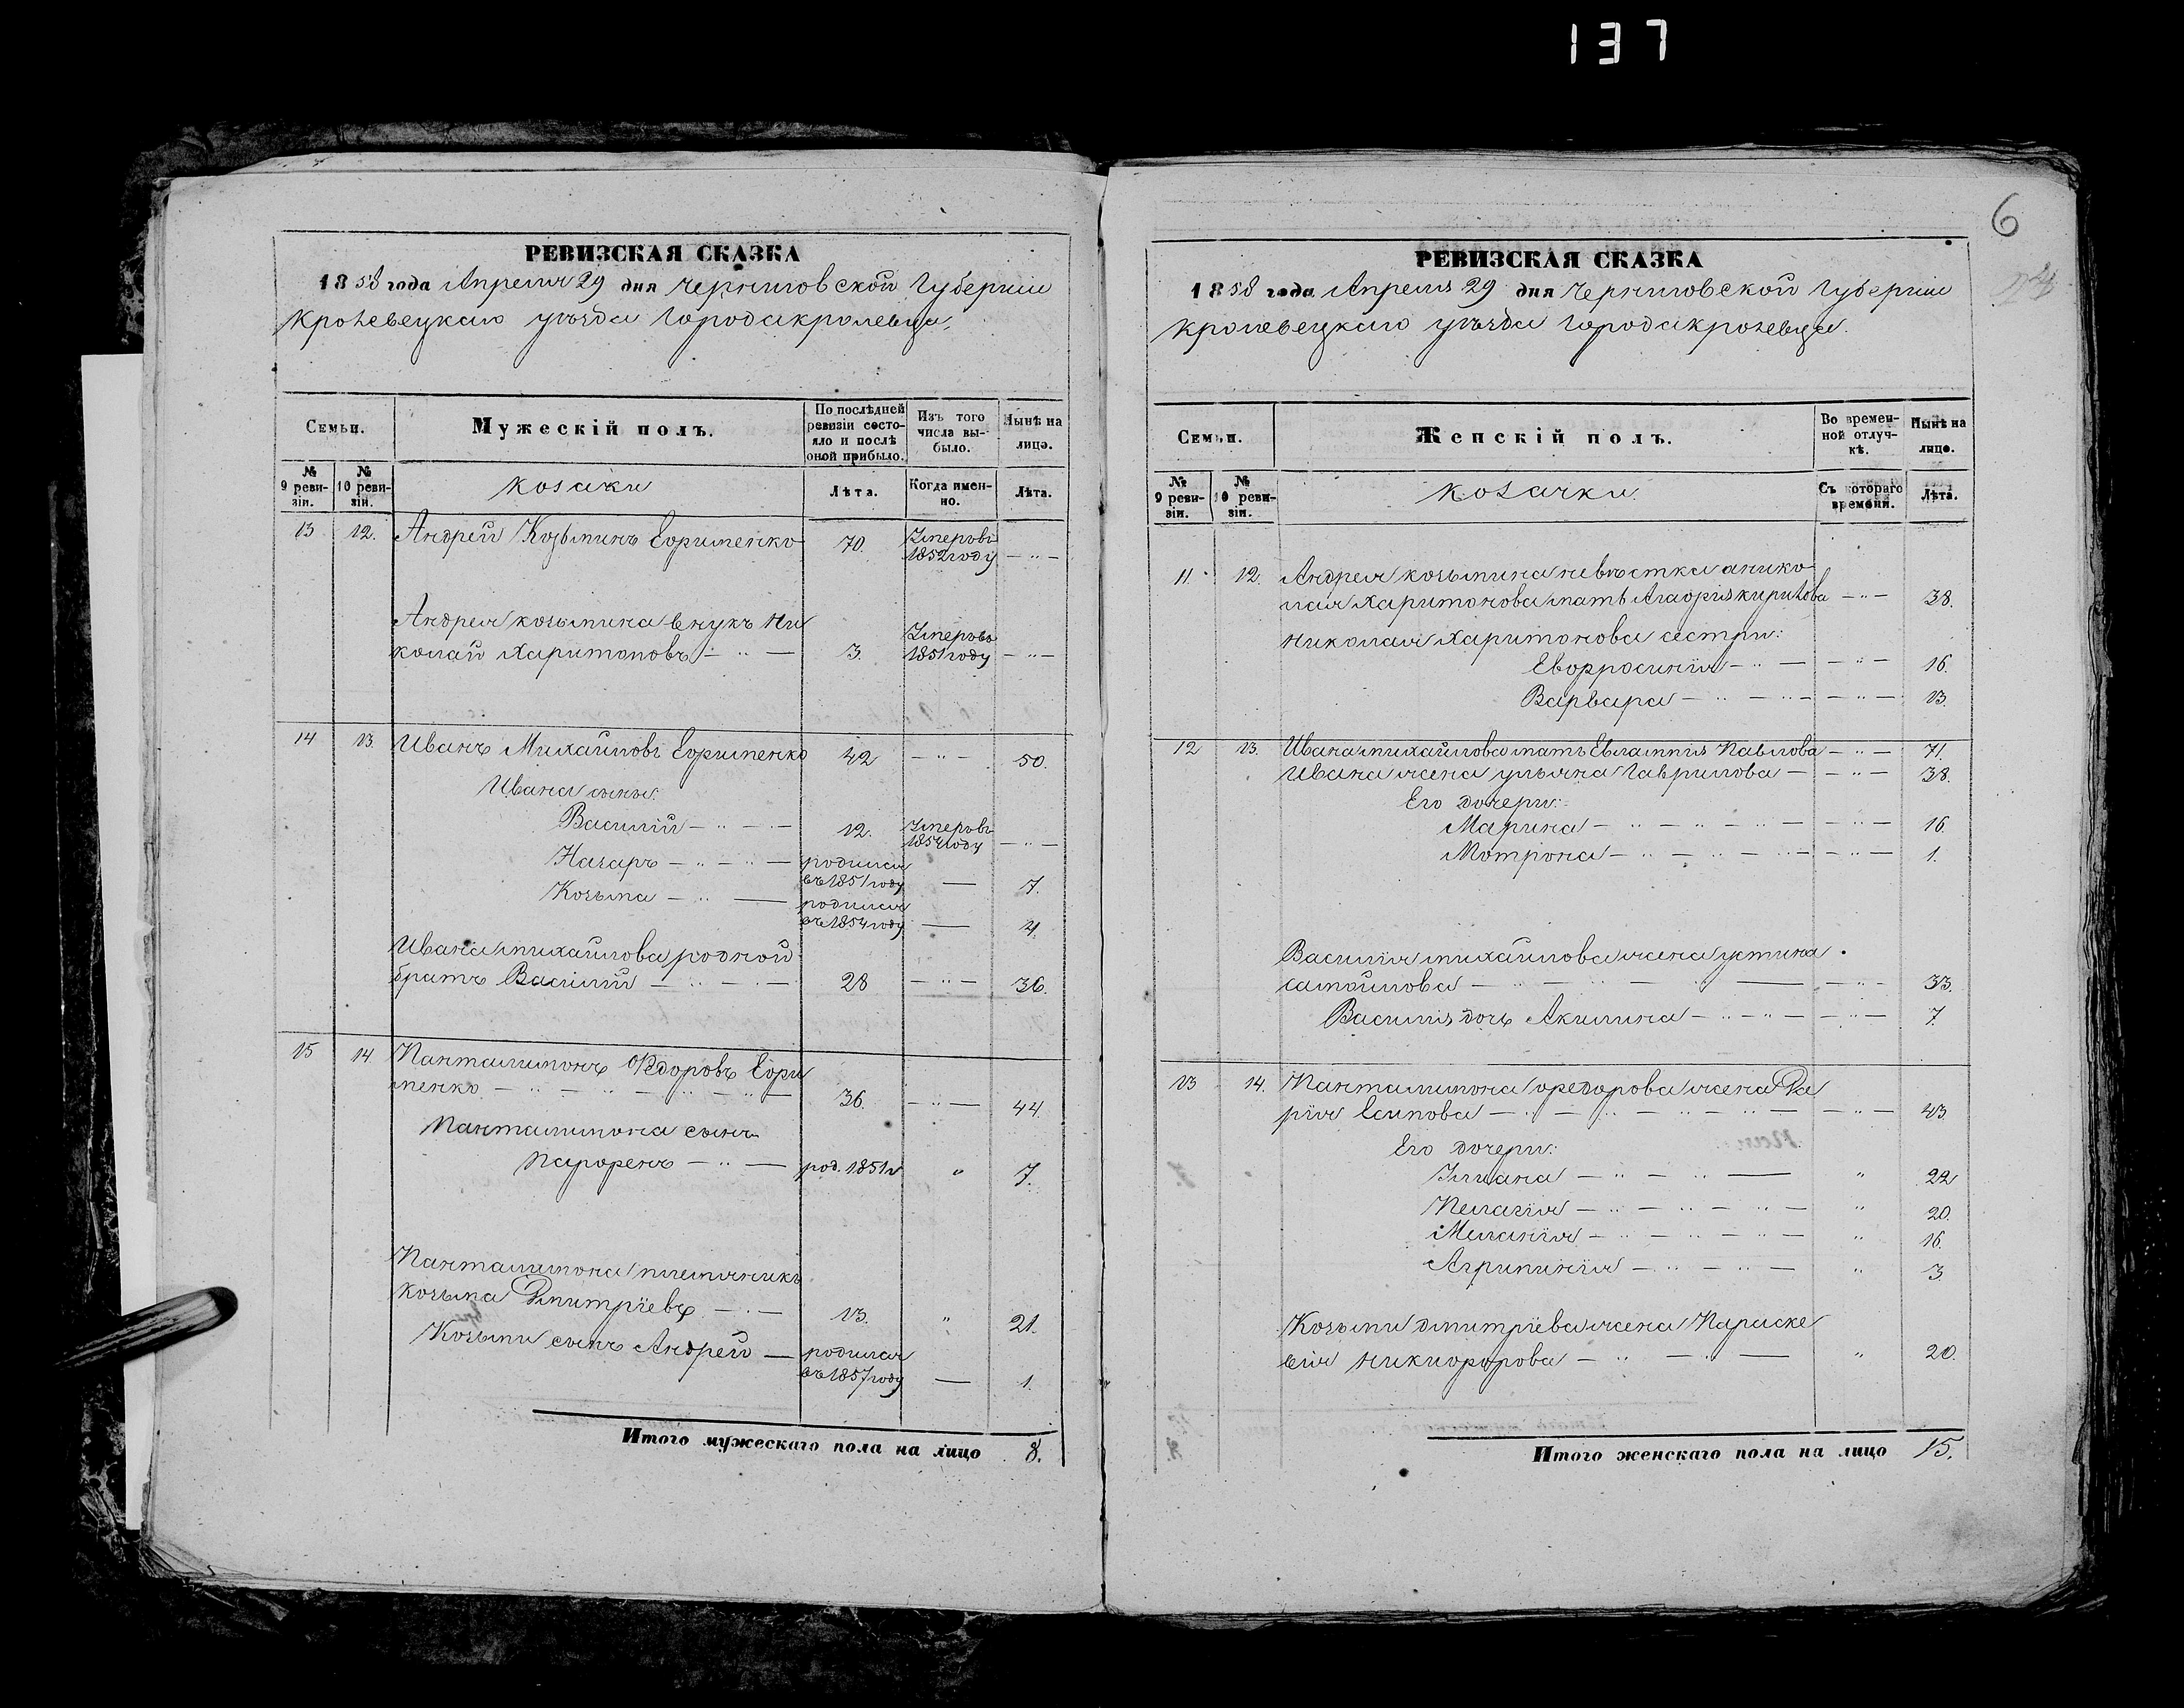 137
РЕВИЗСКАЯ СКАЗКА
1858 года Апреля 29 дня Черниговской Губернии
Кролевецкаго уѣзда Города кролевца.
Семьи.
Мужескій полъ.
По послѣдней ревизіи состояло и послѣ оной прибыло.
Изъ того числа выбыло.
Нынѣ на лицо.
№ 9 ревизіи.
№ 10 ревизіи.
козаки
Лѣта.
Когда именно.
Лѣта.
13 12. Андрей Козьминъ Ефименко 70. Умеръ въ 1852 году — " —
Андрея козьмина внукъ Ни
колай Харитоновъ — " — 3. Умеръ въ 1851 году — " —
14 13. Иванъ Михайловъ Ефименко 42 — " — 50.
Ивана сыны:
Василій — " — 12. Умеръ въ 1854 году — " —
Назаръ — " — " — родился въ 1851 году — 7.
Козьма — " — родился въ 1854 году — 4.
Ивана михайлова родной
братъ Василий — " — " — 28 — " — 36.
15 14 Пантелимонъ Федоровъ Ефи
менко — " — " — " — " — 36. — " — 44.
Пантелимона сынъ
Парфенъ — " — род. 1851 г. " 7.
Пантелимона племяникъ
козьма Дмитріевъ — " — 13. " 21.
Козьми сынъ Андрей — родился въ 1857 году — 1.
Итого мужескаго пола на лицо 8.
6
РЕВИЗСКАЯ СКАЗКА
1858 года Апреля 29 дня Черниговской Губернии
кролевецкаго уѣзда Города кролевца.
Семьи.
Женскій полъ.
Во временной отлучкѣ.
Нынѣ на лицо.
№ 9 ревизіи.
№ 10 ревизіи.
козачки.
Съ котораго времени.
Лѣта.
11. 12. Андрея козьмина невѣстка а нико
лая Харитонова мать Агафия кирилова — " — 38.
николая Харитонова сестры:
Евфросинія — " — — " — 16.
Варвара — " — " — — " — 13.
12 13. Ивана михайлова мать Евлампия Павлова — " — 71.
Ивана жена ульяна Гаврилова — — " — 38.
Его дочери:
Марина — " — " — " — — " — 16.
Мотрона — " — " — " — — " — 1.
Василія михайлова жена устина
самойлова — " — " — " — — " — 33.
Василия дочь Акилина — " — " — — " — 7.
13 14. Пантелимона федорова жена Да
рія Есипова — " — " — " — " — — " — 43.
Его дочери:
Улиана — " — " — " 22
Пелагія — " — " — " — " 20.
Меланія — " — " — " — " 16.
Агрипинія — " — " — " 3.
Козьми дмитріева жена Параске
вія никифорова — " — " — " 20.
Итого женскаго пола на лицо 15.